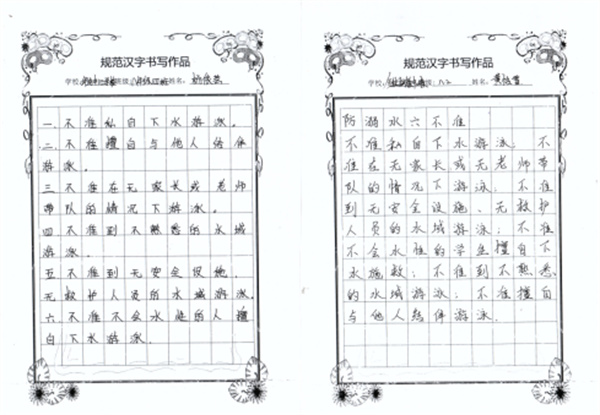 规范汉字书写作品
学校: 班级: 八年级二班 姓名:
一.不准私自下水游泳。
二.不准擅自与他人结伴
游泳。
三.不准在无家长或老师
带队的情况下游泳。
四.不准到不熟悉的水域
游泳。
五.不准到无安全设施,
无救护人员的水域游泳。
六.不准不会水性的人擅
自下水游泳。
规范汉字书写作品
学校: 班级: 八.2 姓名:
防溺水六不准
不准私自下水游泳;不
准在无家长或无老师带
队的情况下游泳;不准
到无安全设施、无救护
人员的水域游泳;不准
不会水性的学生擅自下
水施救;不准到不熟悉
的水域游泳;不准擅自
与他人结伴游泳.